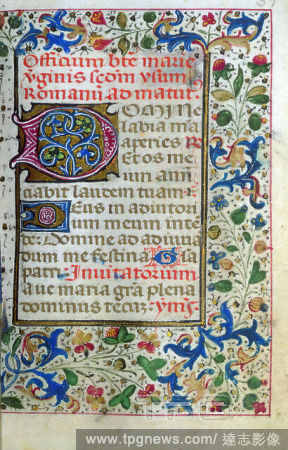 Officium bte marie
v̄ginis scōm vsum
Romanū ad matut̄
DOMINE
labia mea
aperies ℟
Et os me
um ann
ūciabit laudem tuam
Deus in adiutori
um meum inten
te: Domine ad adiuuā
dum me festina Gl̄a
patri Inuitatorium
aue maria grā plena
dominus tecū: ymn̄s
www.tpgnews.com/ 達志影像